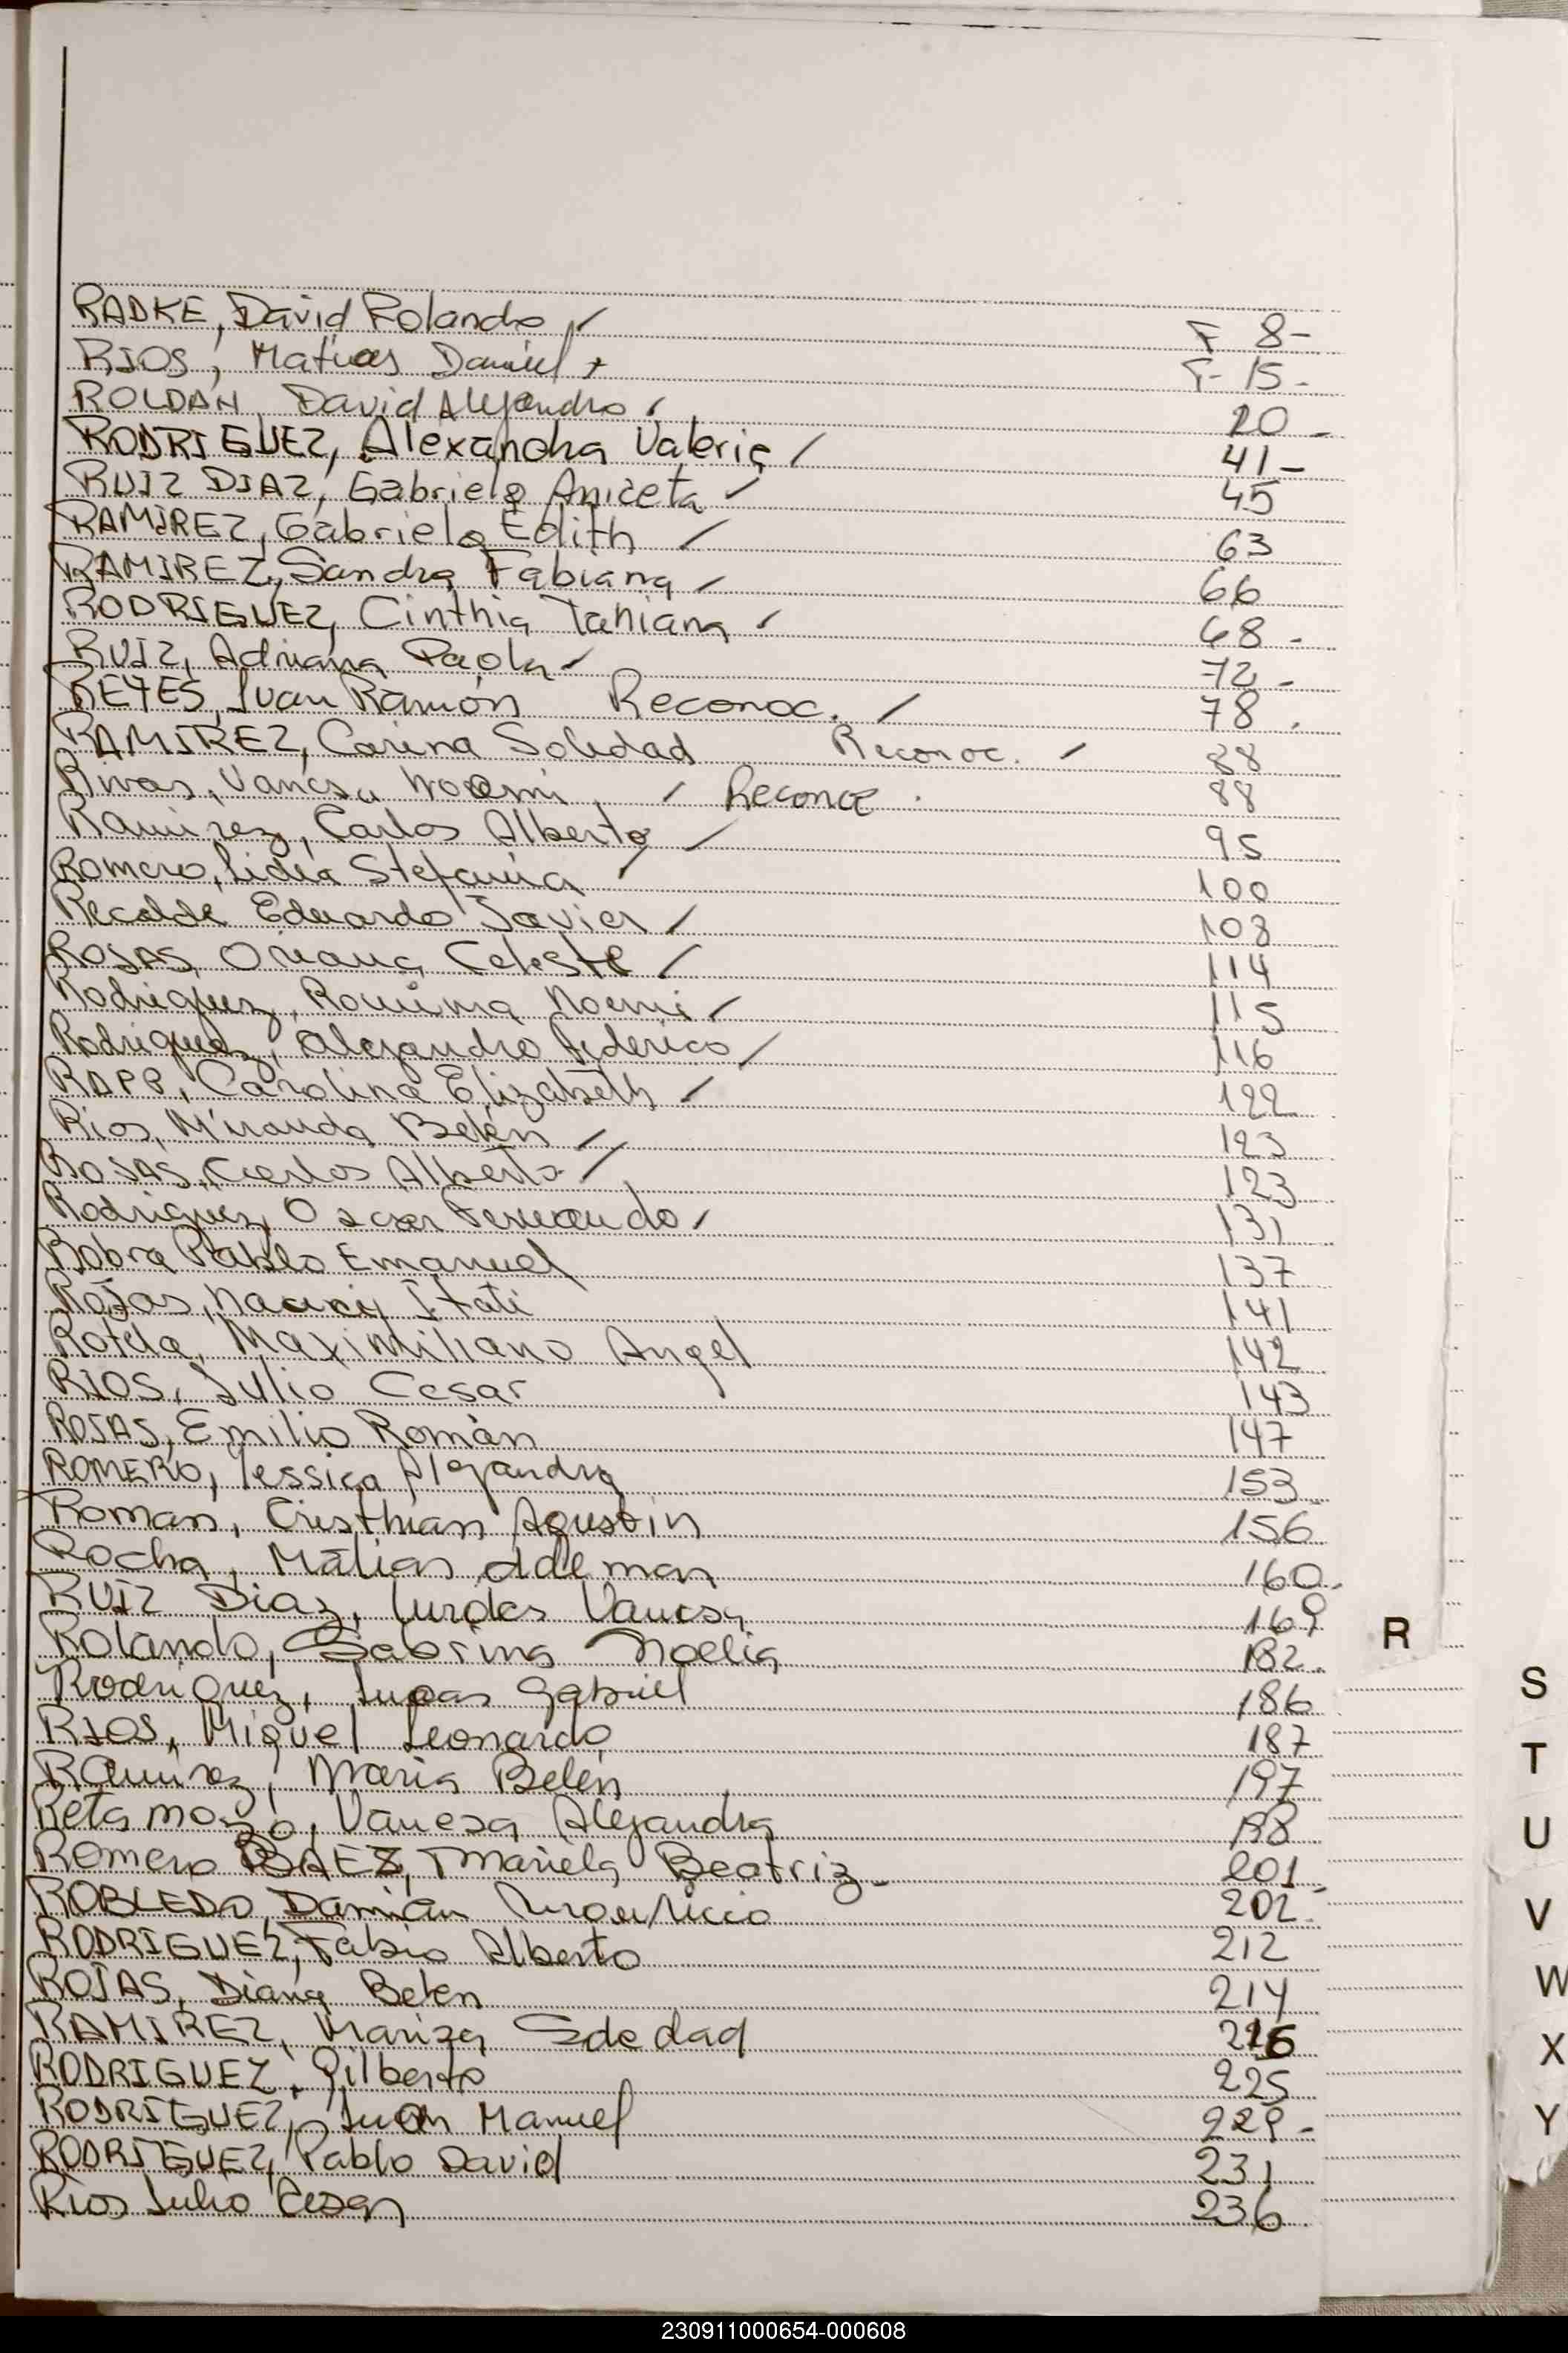 RADKE, David Rolando ✓ F 8-
RIOS, Matias Daniel F- 15-
ROLDAN, David Alejandro ✓ 20-
RODRIGUEZ, Alexandra Valeria ✓ 41-
RUIZ DIAZ, Gabriela Aniceta ✓ 45
RAMIREZ, Gabriela Edith ✓ 63
RAMIREZ, Sandra Fabiana ✓ 66
RODRIGUEZ, Cinthia Tatiana ✓ 68-
RUIZ, Adriana Paola ✓ 72-
REYES, Juan Ramón Reconoc. ✓ 78.
RAMIREZ, Carina Soledad Reconoc. ✓ 88
Rivas, Vanesa Noemi, ✓ Reconoc. 88
Ramirez, Carlos Alberto ✓ 95
Romero, Lidia Stefania ✓ 100
Recalde Eduardo Javier ✓ 108
ROJAS, Oriana Celeste ✓ 114
Rodriguez, Romina Noemi ✓ 115
Rodriguez, Alejandro Federico ✓ 116
RAPP, Carolina Elizabeth ✓ 122
Rios, Miranda Belén ✓ 123
ROJAS, Carlos Alberto ✓ 123
Rodriguez, Oscar Fernando ✓ 131
Bobra Pablo Emanuel 137
Rojas, Itati 141
Rotela, Maximiliano Angel 142
RIOS, Julio Cesar 143
ROJAS, Emilio Román 147
ROMERO, Yessica Alejandra 153
Roman, Cristhian Agustin 156
Rocha, Matias 160.
RUIZ Diaz, Lurdes Vanesa 169
Rolando, Sabrina Noelia 182.
Rodriguez, Lucas Gabriel 186
RIOS, Miguel Leonardo 187
Ramirez, Maria Belén 197
Retamozo, Vanesa Alejandra 198
Romero BAEZ, Mariela Beatriz- 201
ROBLEDO, Damián 202
RODRIGUEZ, Fabio Alberto 212
ROJAS, Diana Belen 214
RAMIREZ, Mariza Soledad
RODRIGUEZ, Gilberto 225
RODRIGUEZ, Juan Manuel 229-
RODRIGUEZ, Pablo David 231
Rios Julio Cesar 236
R
S
T
U
V
W
X
Y
230911000654-000608